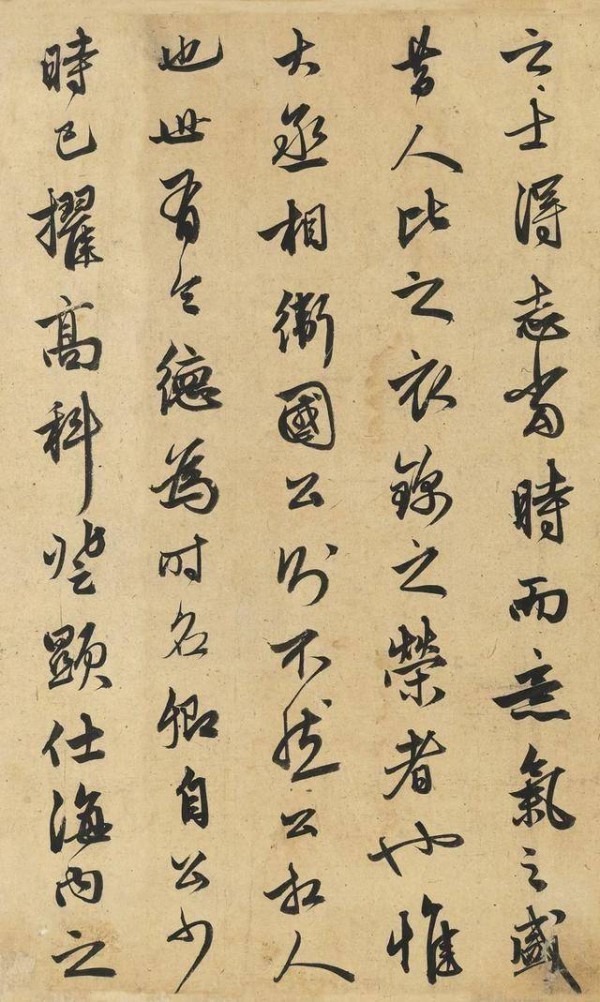 之士得志當時而意氣之盛
昔人比之衣錦之榮者也惟
大丞相衛國公則不然公相人
也世有令德為時名卿自公少
時已擢髙科登顯仕海內之